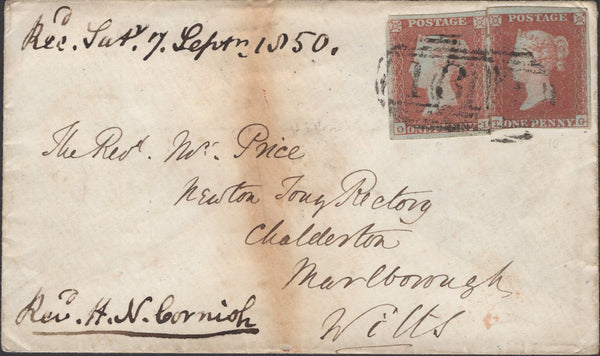 Recd. Saty. 7. Septr. 1850.
POSTAGE
POSTAGE
ONE PENNY
The Revd. Mr. Price
Newton Tony Rectory
Chalderton
Marlborough
Wilts
Revd. H. N. Cornish